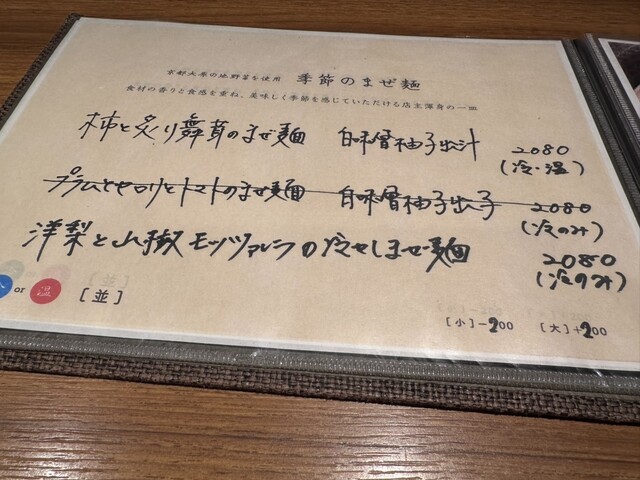 京都大原の地野菜を使用 季節のまぜ麺
食材の香りと食感を重ね、美味しく季節を感じていただける店主渾身の一皿
柿と炙り舞茸のまぜ麺 白味噌柚子出汁 2080
(冷・温)
プラムとセロリとトマトのまぜ麺 白味噌柚子出汁 2080
(冷のみ)
洋梨と山椒モッツァレラの冷やしまぜ麺 2080
(冷のみ)
or 温 [並]
[小]-200 [大]+200